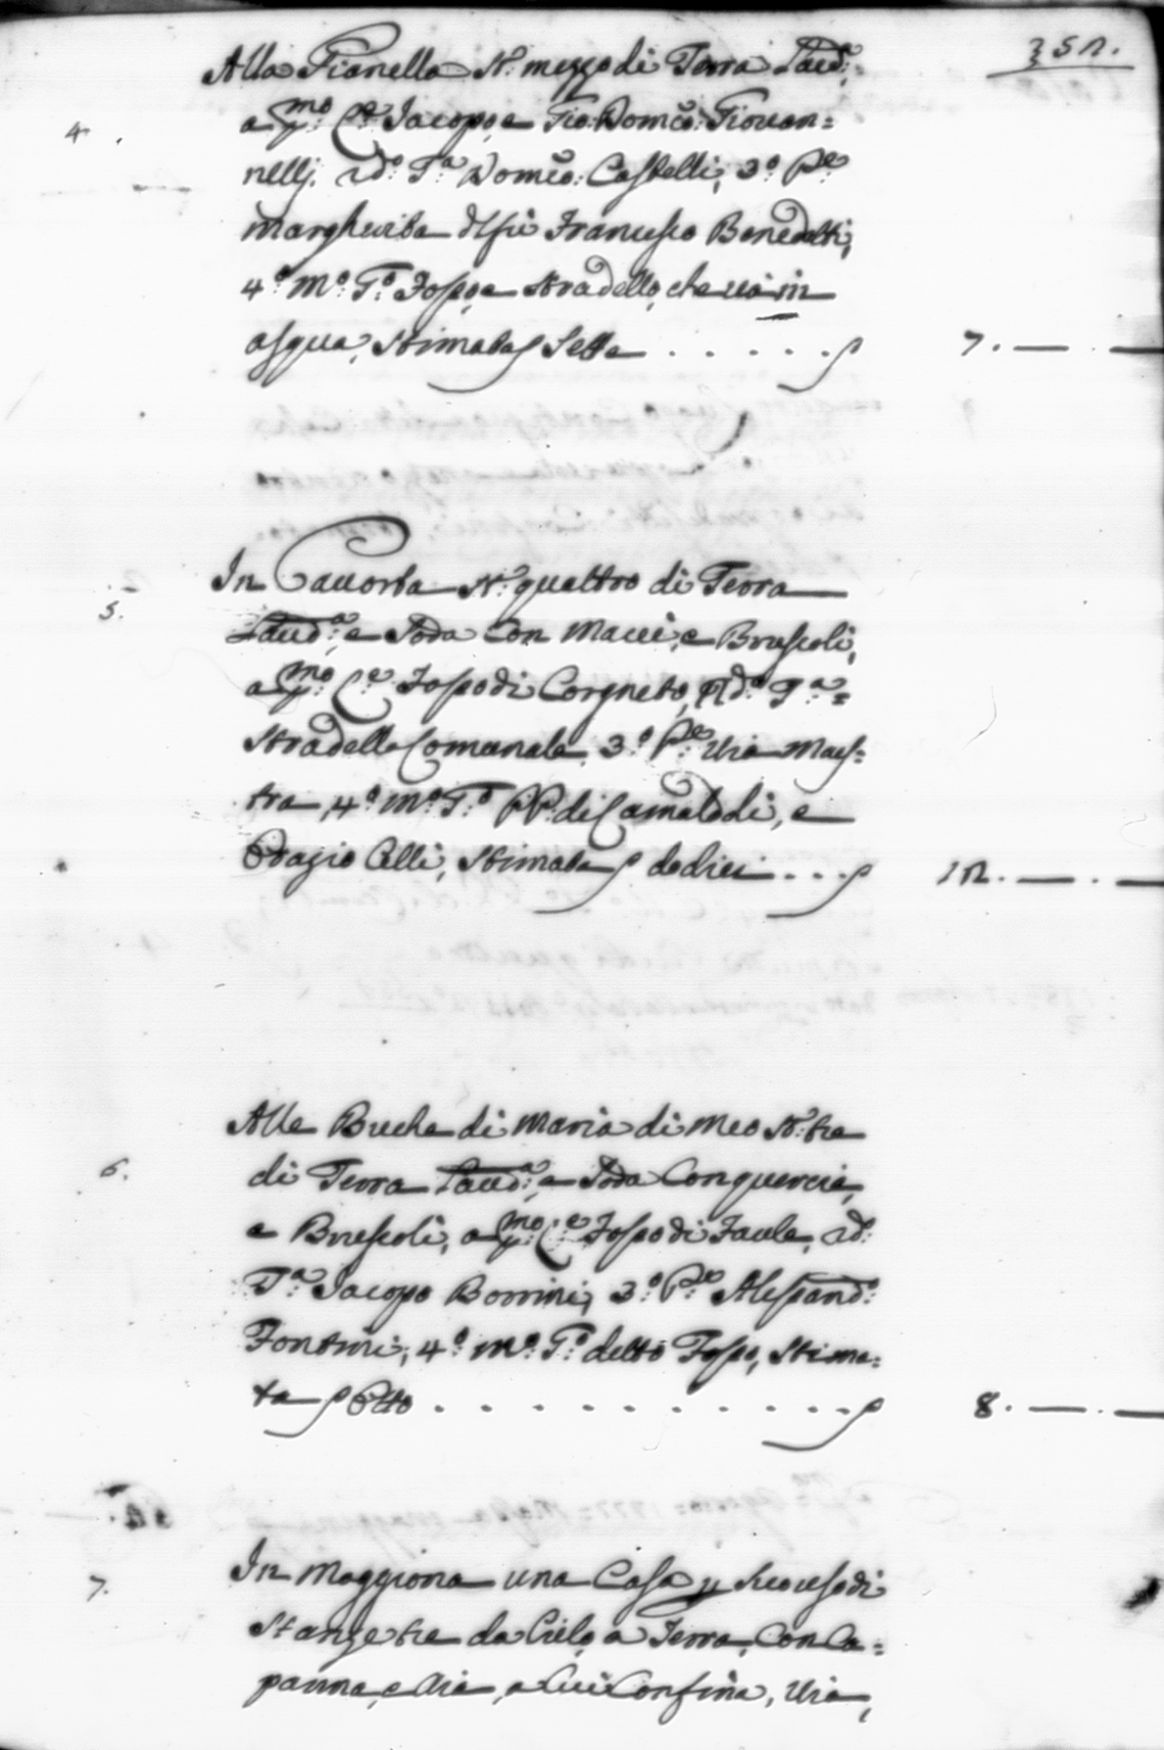 352.
Alla Pianella St. mezzo di Terra Laud:ª
4. a p:mo C:e Jacopo, e Gio: Domco: Giovan=
nelli. 2d:o T:a Domco: Castelli, 3:o P:e
Margherita del fù Francesco Benedetti,
4:o M:o T:o Fosso, e Stradello, che và in
asqua, Stimata S Sette . . . . . S 7. — . —
In Cavorta St. quattro di Terra
5. Laud:ª, e Soda Con Macci, e Bruscoli,
a p:mo C:e Fosso di Corgneto, 2d:o T:a =
Stradello Comunale, 3:o P:e Via Maes=
tra, 4:o M:o T:o PP. di Camaldoli, e
Biagio Celli, Stimata S dodici . . . S 12. — . —
Alle Buche di Maria di Meo St. tre
6. di Terra Laud:ª, e Soda Con quercie,
e Bruscoli, a p:mo C:e Fosso di Faule, 2d:
T:a Jacopo Borrini, 3:o P:e Alessand:o
Fontini, 4:o M:o T:o detto Fosso, Stima=
ta S Otto . . . . . . . . . . S 8. — . —
7. In Moggiona una Casa p Suo uso di
Stanze tre da Cielo, a Terra, Con Ca=
panna, e Aia, a Cui Confina, Via,